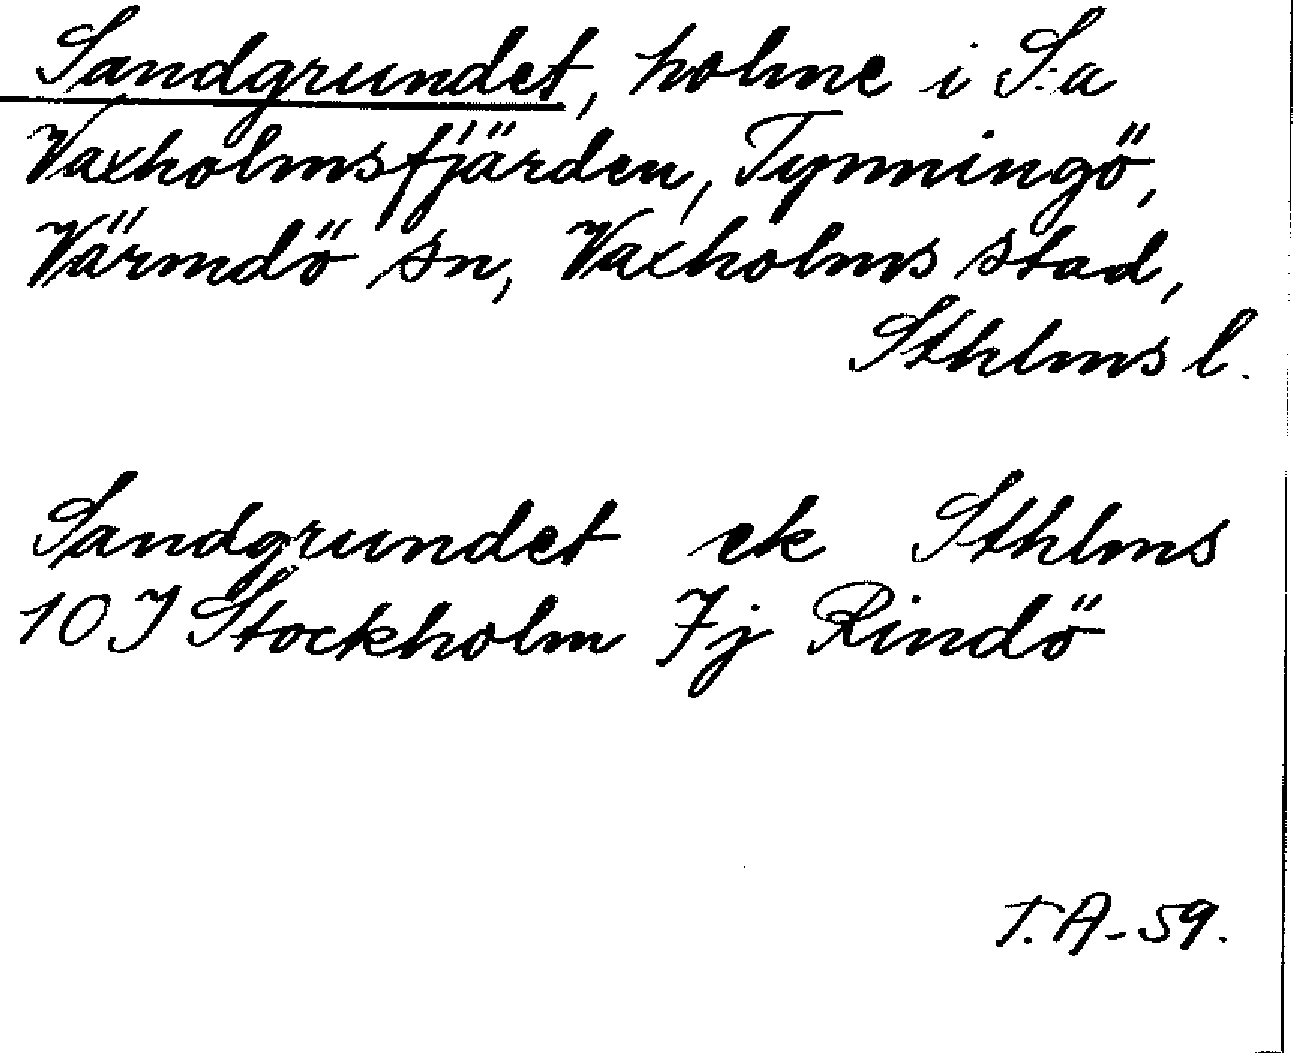 Sandgrundet, holme i S:a
Vaxholmsfjärden, Tynningö,
Värmdö sn, Vaxholms stad,
Sthlms l.
Sandgrundet ek Sthlms
10 I Stockholm 7j Rindö
T.A-59.